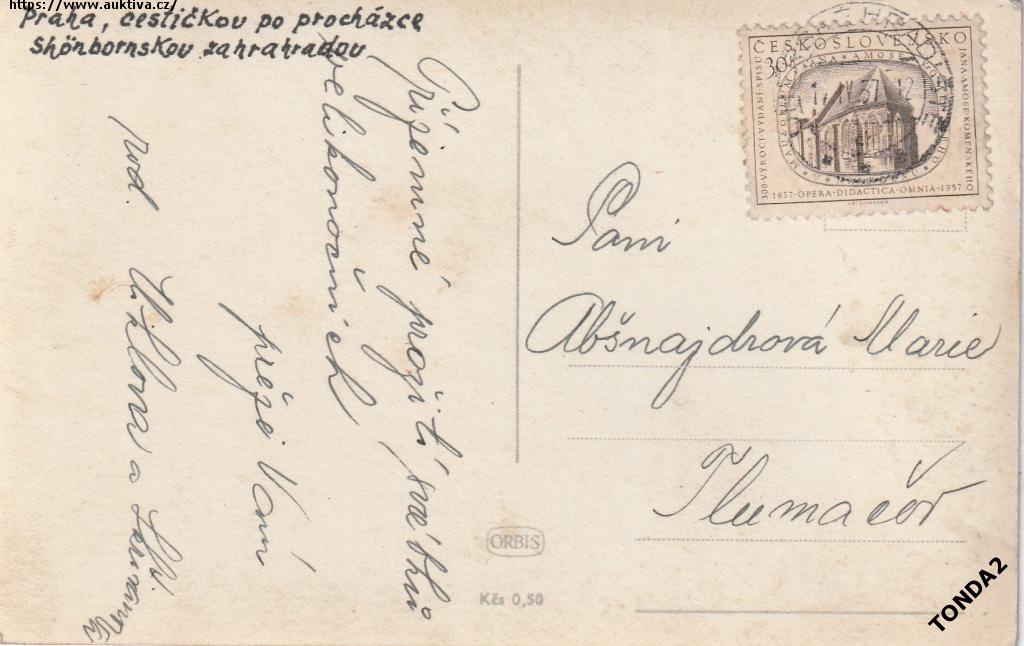 https://www.auktiva.cz/
Praha, cestičkou po procházce
Shönbornskou zahrahradou
Příjemné prožití svátků
velikonočních
přeje Vám
rod.
a
Paní
Abšnajdrová Marie
Tlumačov
ČESKOSLOVENSKO
30
300·VÝROČÍ·VYDÁNÍ·SPISU
JANA·AMOSE·KOMENSKÉHO
1657·OPERA·DIDACTICA·OMNIA·1957
ORBIS
Kčs 0,50
TONDA2